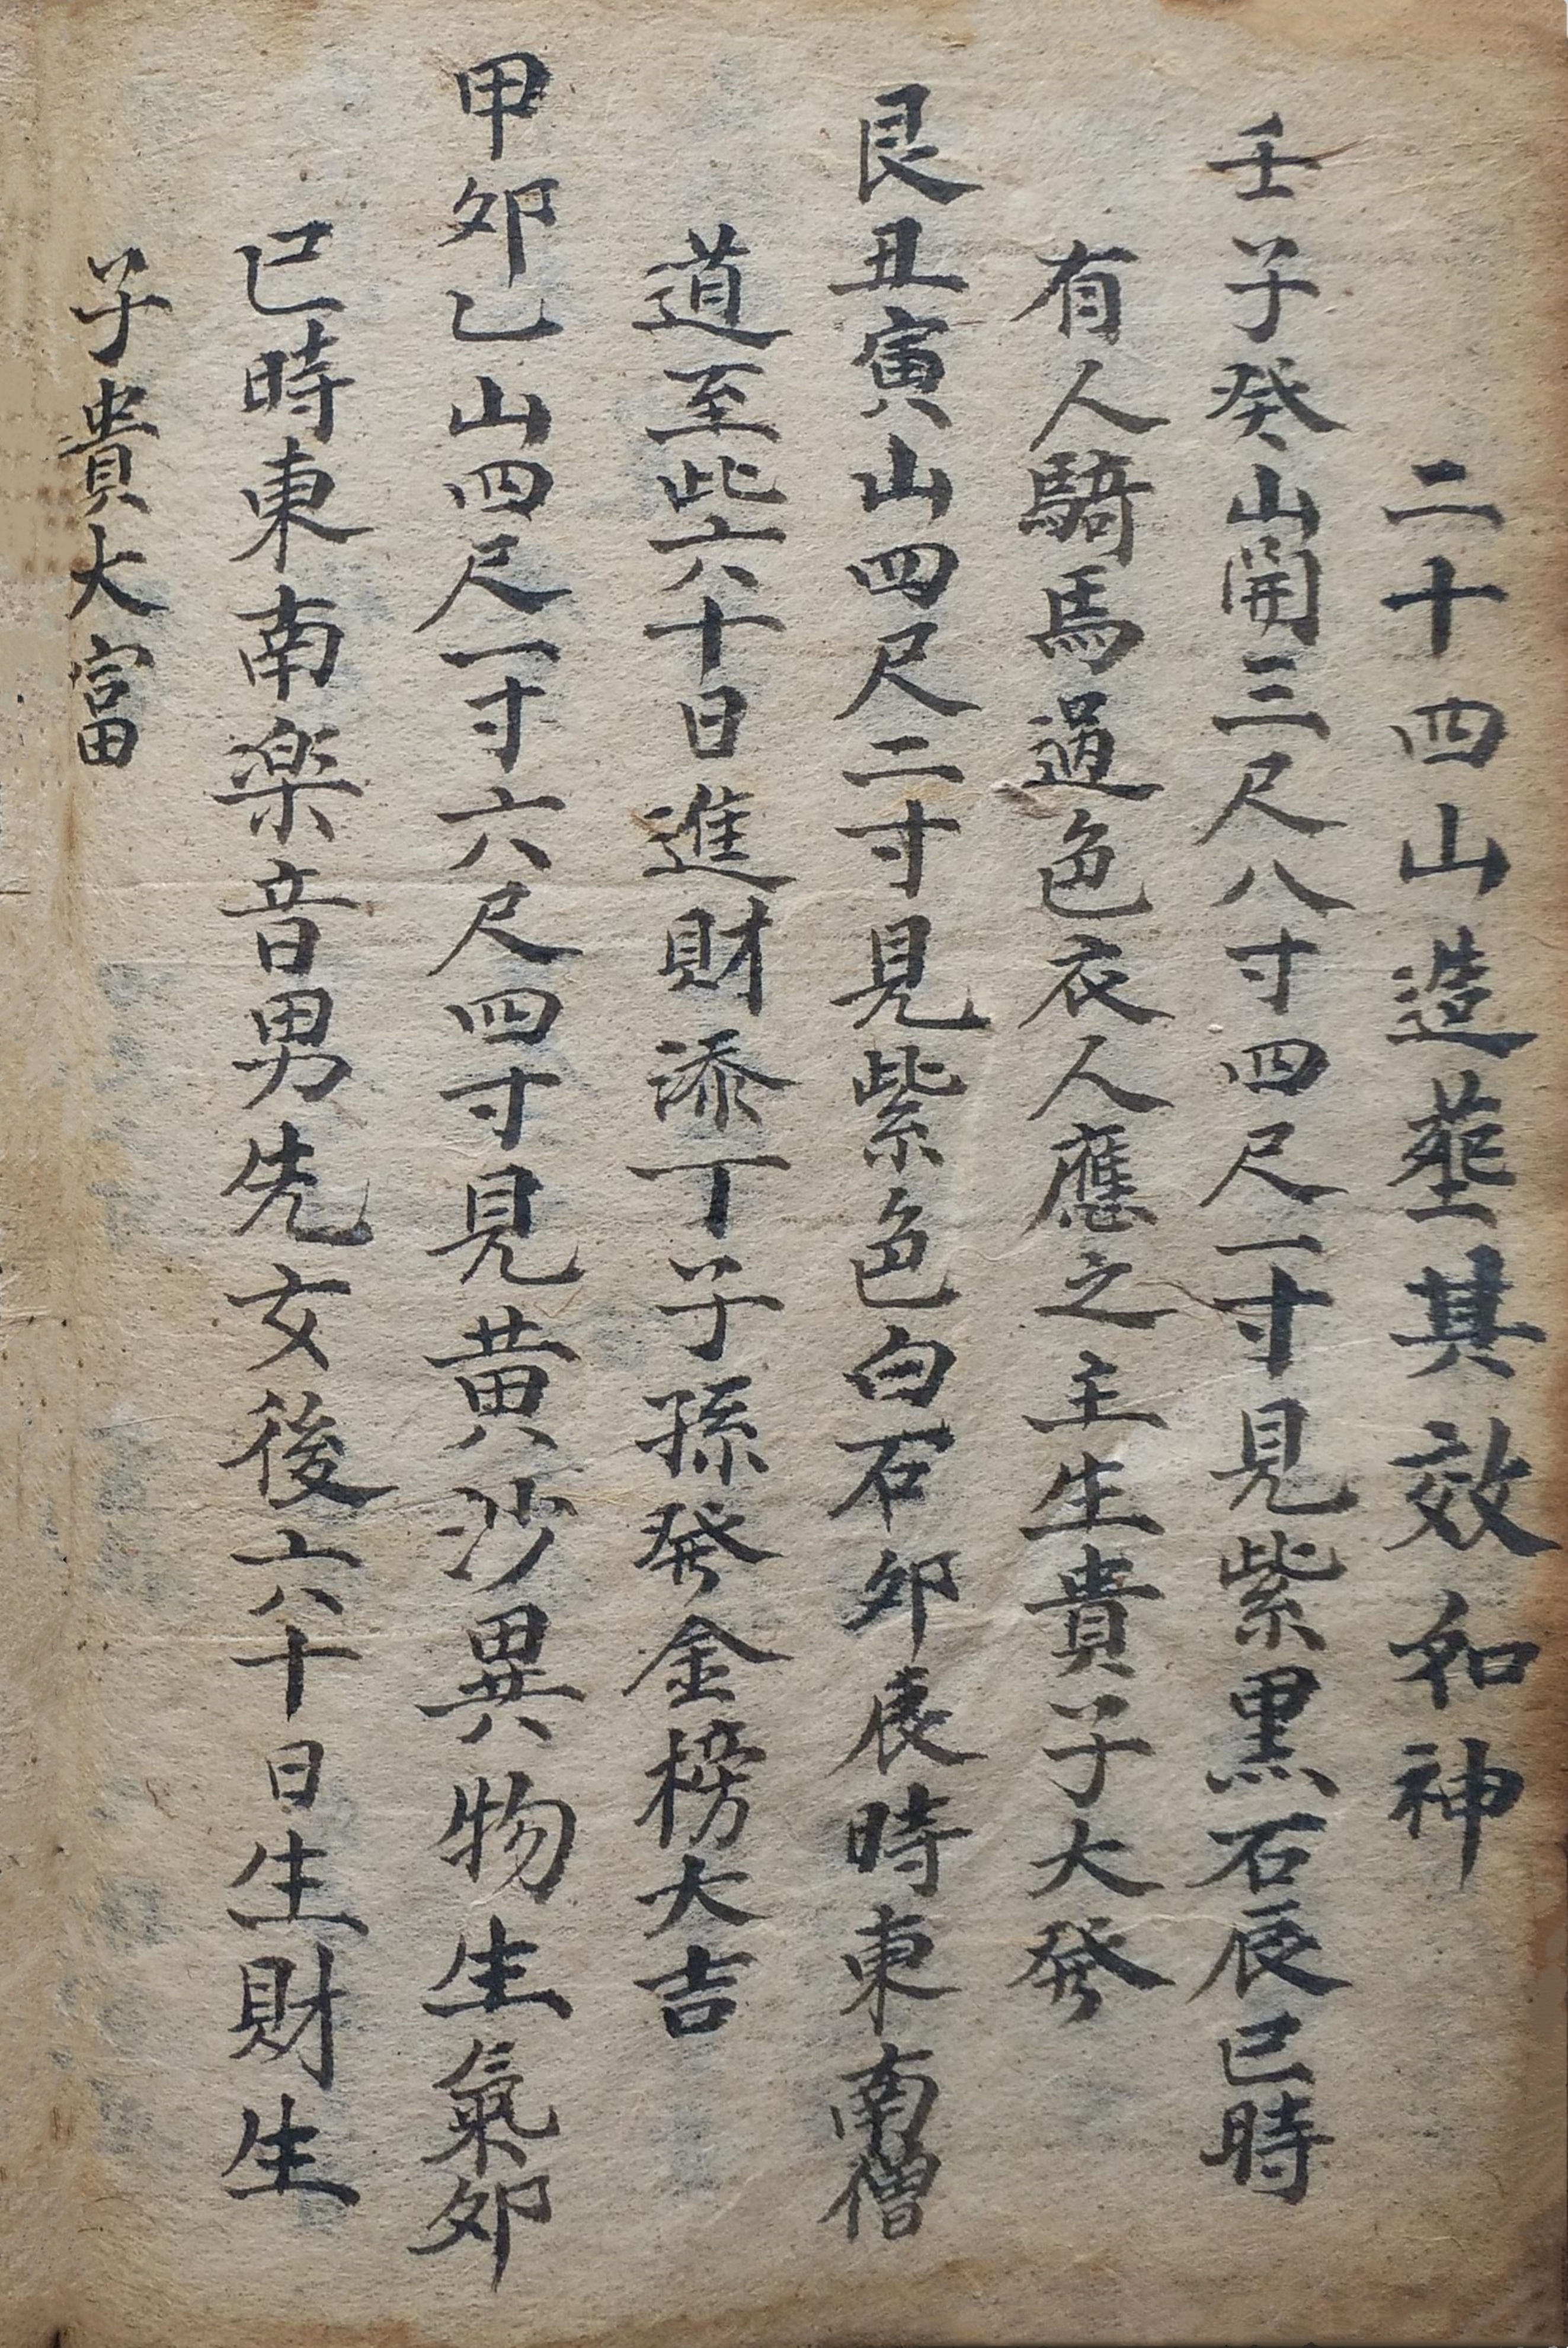 二十四山造塟其效和神
壬子癸山開三尺八寸四尺一寸見紫黒石辰巳時
有人騎馬過色衣人應之主生貴子大發
艮丑寅山四尺二寸見紫色白石夘辰時東南僧
道至此六十日進財添丁子孫發金榜大吉
甲夘乙山四尺一寸六尺四寸見黄沙異物生氣夘
巳時東南楽音男先女後六十日生財生
子貴大富